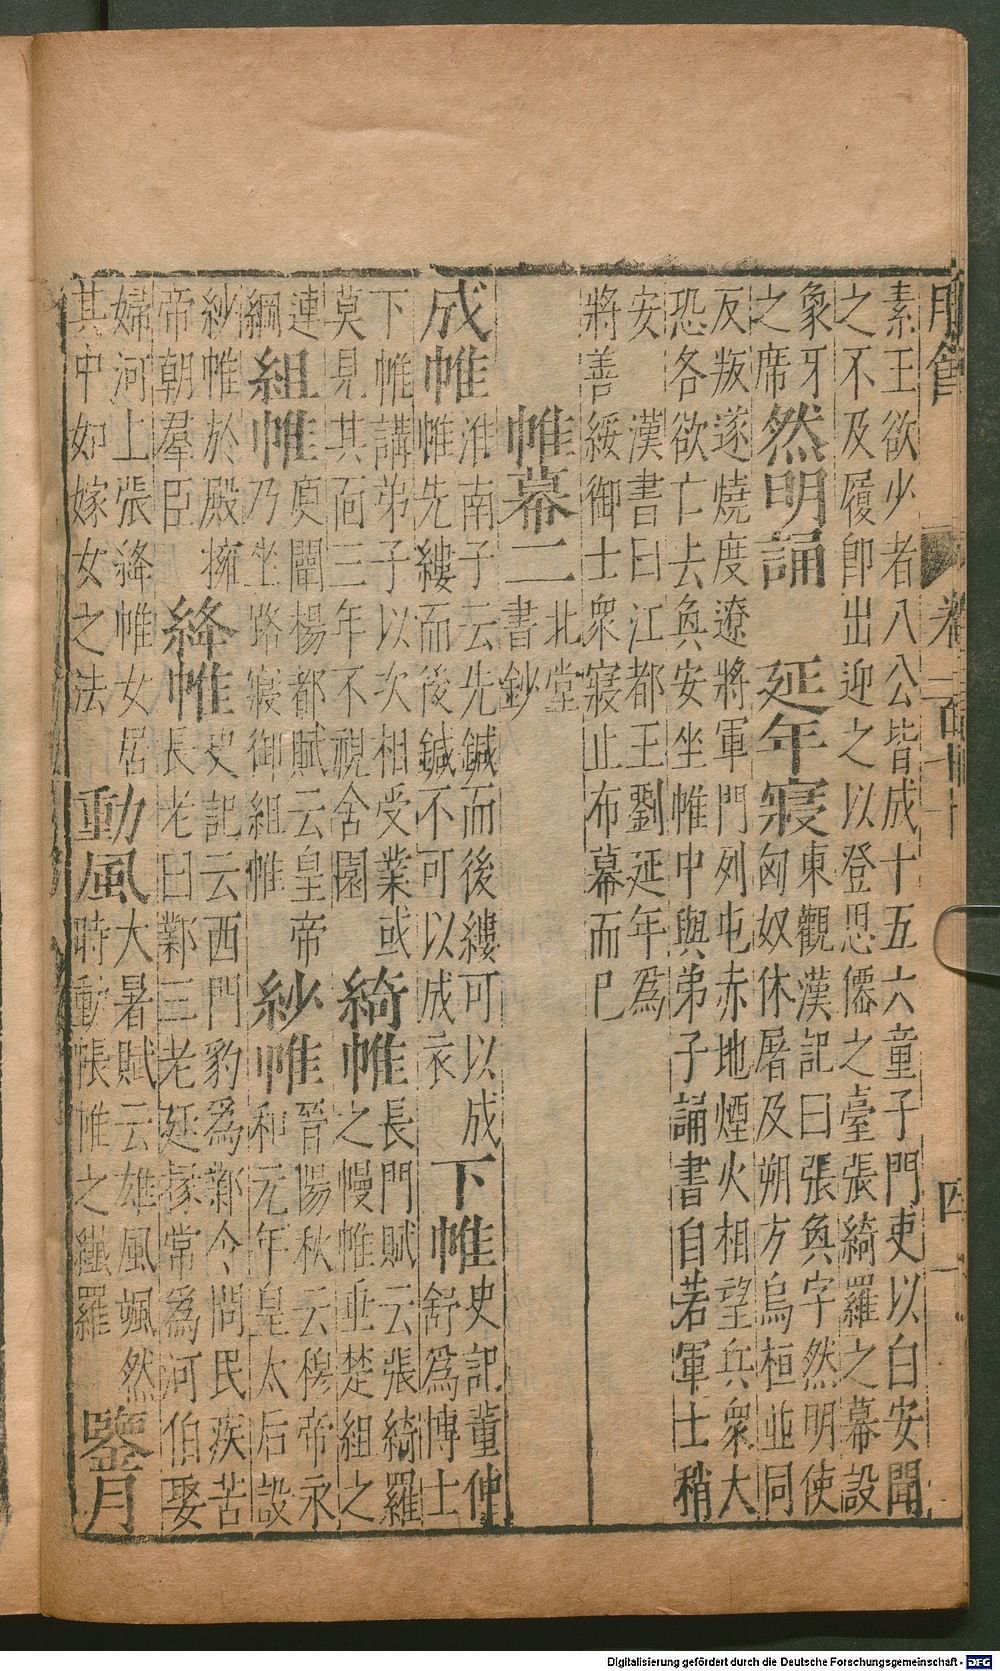 素王欲少者八公皆成十五六童子門吏以白安聞
之不及履卽出迎之以登思僊之臺張綺羅之幕設
象牙
之席
然明誦
延年寢
東觀漢記曰張奐字然明使
匈奴休屠及朔方烏桓並同
反叛遂燒度遼將軍門列屯赤地煙火相望兵衆大
恐各欲亡去奐安坐帷中與弟子誦書自若軍士稍
安 漢書曰江都王劉延年爲
將善綏御士衆寢止布幕而已
帷幕二
北堂
書鈔
成帷
淮南子云先鍼而後縷可以成
帷先縷而後鍼不可以成衣
下帷
史記董仲
舒爲博士
下帷講弟子以次相受業或
莫見其面三年不視舍園
綺帷
長門賦云張綺羅
之幔帷垂楚組之
連
綱
組帷
庾闡楊都賦云皇帝
乃坐路寢御組帷
紗帷
晉陽秋云穆帝永
和元年皇太后設
紗帷於殿擁
帝朝羣臣
絳帷
史記云西門豹爲鄴令問民疾苦
長老曰鄴三老廷掾常爲河伯娶
婦河上張絳帷女居
其中如嫁女之法
動風
大暑賦云雄風颯然
時動帳帷之纖羅
鑒月
四
Digitalisierung gefördert durch die Deutsche Forschungsgemeinschaft - DFG